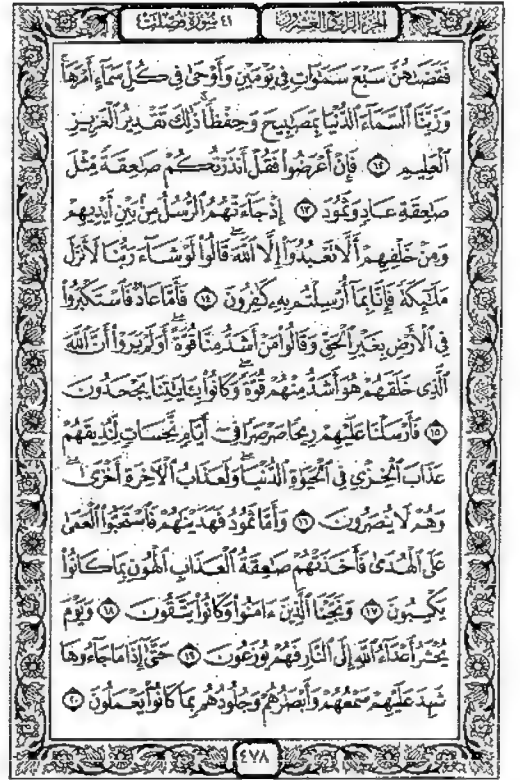 الجزء الرابع والعشرون
٤١ سورة فصلت
فَقَضَىٰهُنَّ سَبْعَ سَمَٰوَاتٍ فِي يَوْمَيْنِ وَأَوْحَىٰ فِي كُلِّ سَمَآءٍ أَمْرَهَا ۚ
وَزَيَّنَّا ٱلسَّمَآءَ ٱلدُّنْيَا بِمَصَٰبِيحَ وَحِفْظًا ۚ ذَٰلِكَ تَقْدِيرُ ٱلْعَزِيزِ
ٱلْعَلِيمِ ١٢ فَإِنْ أَعْرَضُوا۟ فَقُلْ أَنذَرْتُكُمْ صَٰعِقَةً مِّثْلَ
صَٰعِقَةِ عَادٍ وَثَمُودَ ١٣ إِذْ جَآءَتْهُمُ ٱلرُّسُلُ مِنۢ بَيْنِ أَيْدِيهِمْ
وَمِنْ خَلْفِهِمْ أَلَّا تَعْبُدُوٓا۟ إِلَّا ٱللَّهَ ۖ قَالُوا۟ لَوْ شَآءَ رَبُّنَا لَأَنزَلَ
مَلَٰٓئِكَةً فَإِنَّا بِمَآ أُرْسِلْتُم بِهِۦ كَٰفِرُونَ ١٤ فَأَمَّا عَادٌ فَٱسْتَكْبَرُوا۟
فِي ٱلْأَرْضِ بِغَيْرِ ٱلْحَقِّ وَقَالُوا۟ مَنْ أَشَدُّ مِنَّا قُوَّةً ۖ أَوَلَمْ يَرَوْا۟ أَنَّ ٱللَّهَ
ٱلَّذِي خَلَقَهُمْ هُوَ أَشَدُّ مِنْهُمْ قُوَّةً ۖ وَكَانُوا۟ بِـَٔايَٰتِنَا يَجْحَدُونَ
١٥ فَأَرْسَلْنَا عَلَيْهِمْ رِيحًا صَرْصَرًا فِيٓ أَيَّامٍ نَّحِسَاتٍ لِّنُذِيقَهُمْ
عَذَابَ ٱلْخِزْيِ فِي ٱلْحَيَوٰةِ ٱلدُّنْيَا ۖ وَلَعَذَابُ ٱلْءَاخِرَةِ أَخْزَىٰ ۖ
وَهُمْ لَا يُنصَرُونَ ١٦ وَأَمَّا ثَمُودُ فَهَدَيْنَٰهُمْ فَٱسْتَحَبُّوا۟ ٱلْعَمَىٰ
عَلَى ٱلْهُدَىٰ فَأَخَذَتْهُمْ صَٰعِقَةُ ٱلْعَذَابِ ٱلْهُونِ بِمَا كَانُوا۟
يَكْسِبُونَ ١٧ وَنَجَّيْنَا ٱلَّذِينَ ءَامَنُوا۟ وَكَانُوا۟ يَتَّقُونَ ١٨ وَيَوْمَ
يُحْشَرُ أَعْدَآءُ ٱللَّهِ إِلَى ٱلنَّارِ فَهُمْ يُوزَعُونَ ١٩ حَتَّىٰٓ إِذَا مَا جَآءُوهَا
شَهِدَ عَلَيْهِمْ سَمْعُهُمْ وَأَبْصَٰرُهُمْ وَجُلُودُهُم بِمَا كَانُوا۟ يَعْمَلُونَ ٢٠
٤٧٨